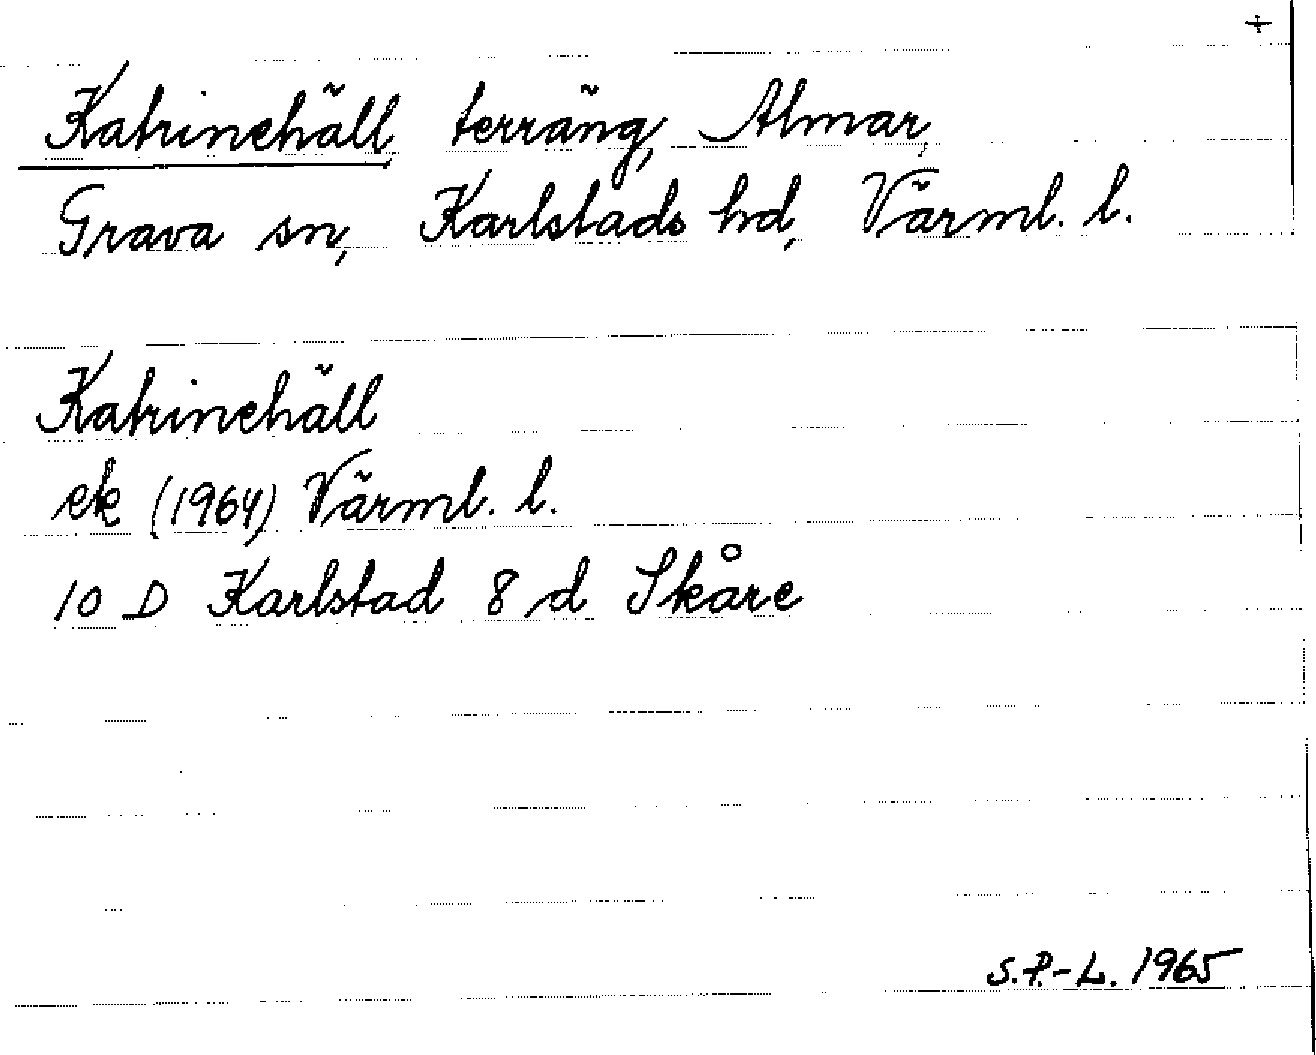 +
Katrinehäll, terräng, Almar,
Grava sn, Karlstads hd, Värml. l.
Katrinehäll
ek (1964) Värml. l.
10 D Karlstad 8 d Skåre
S.P.-L. 1965